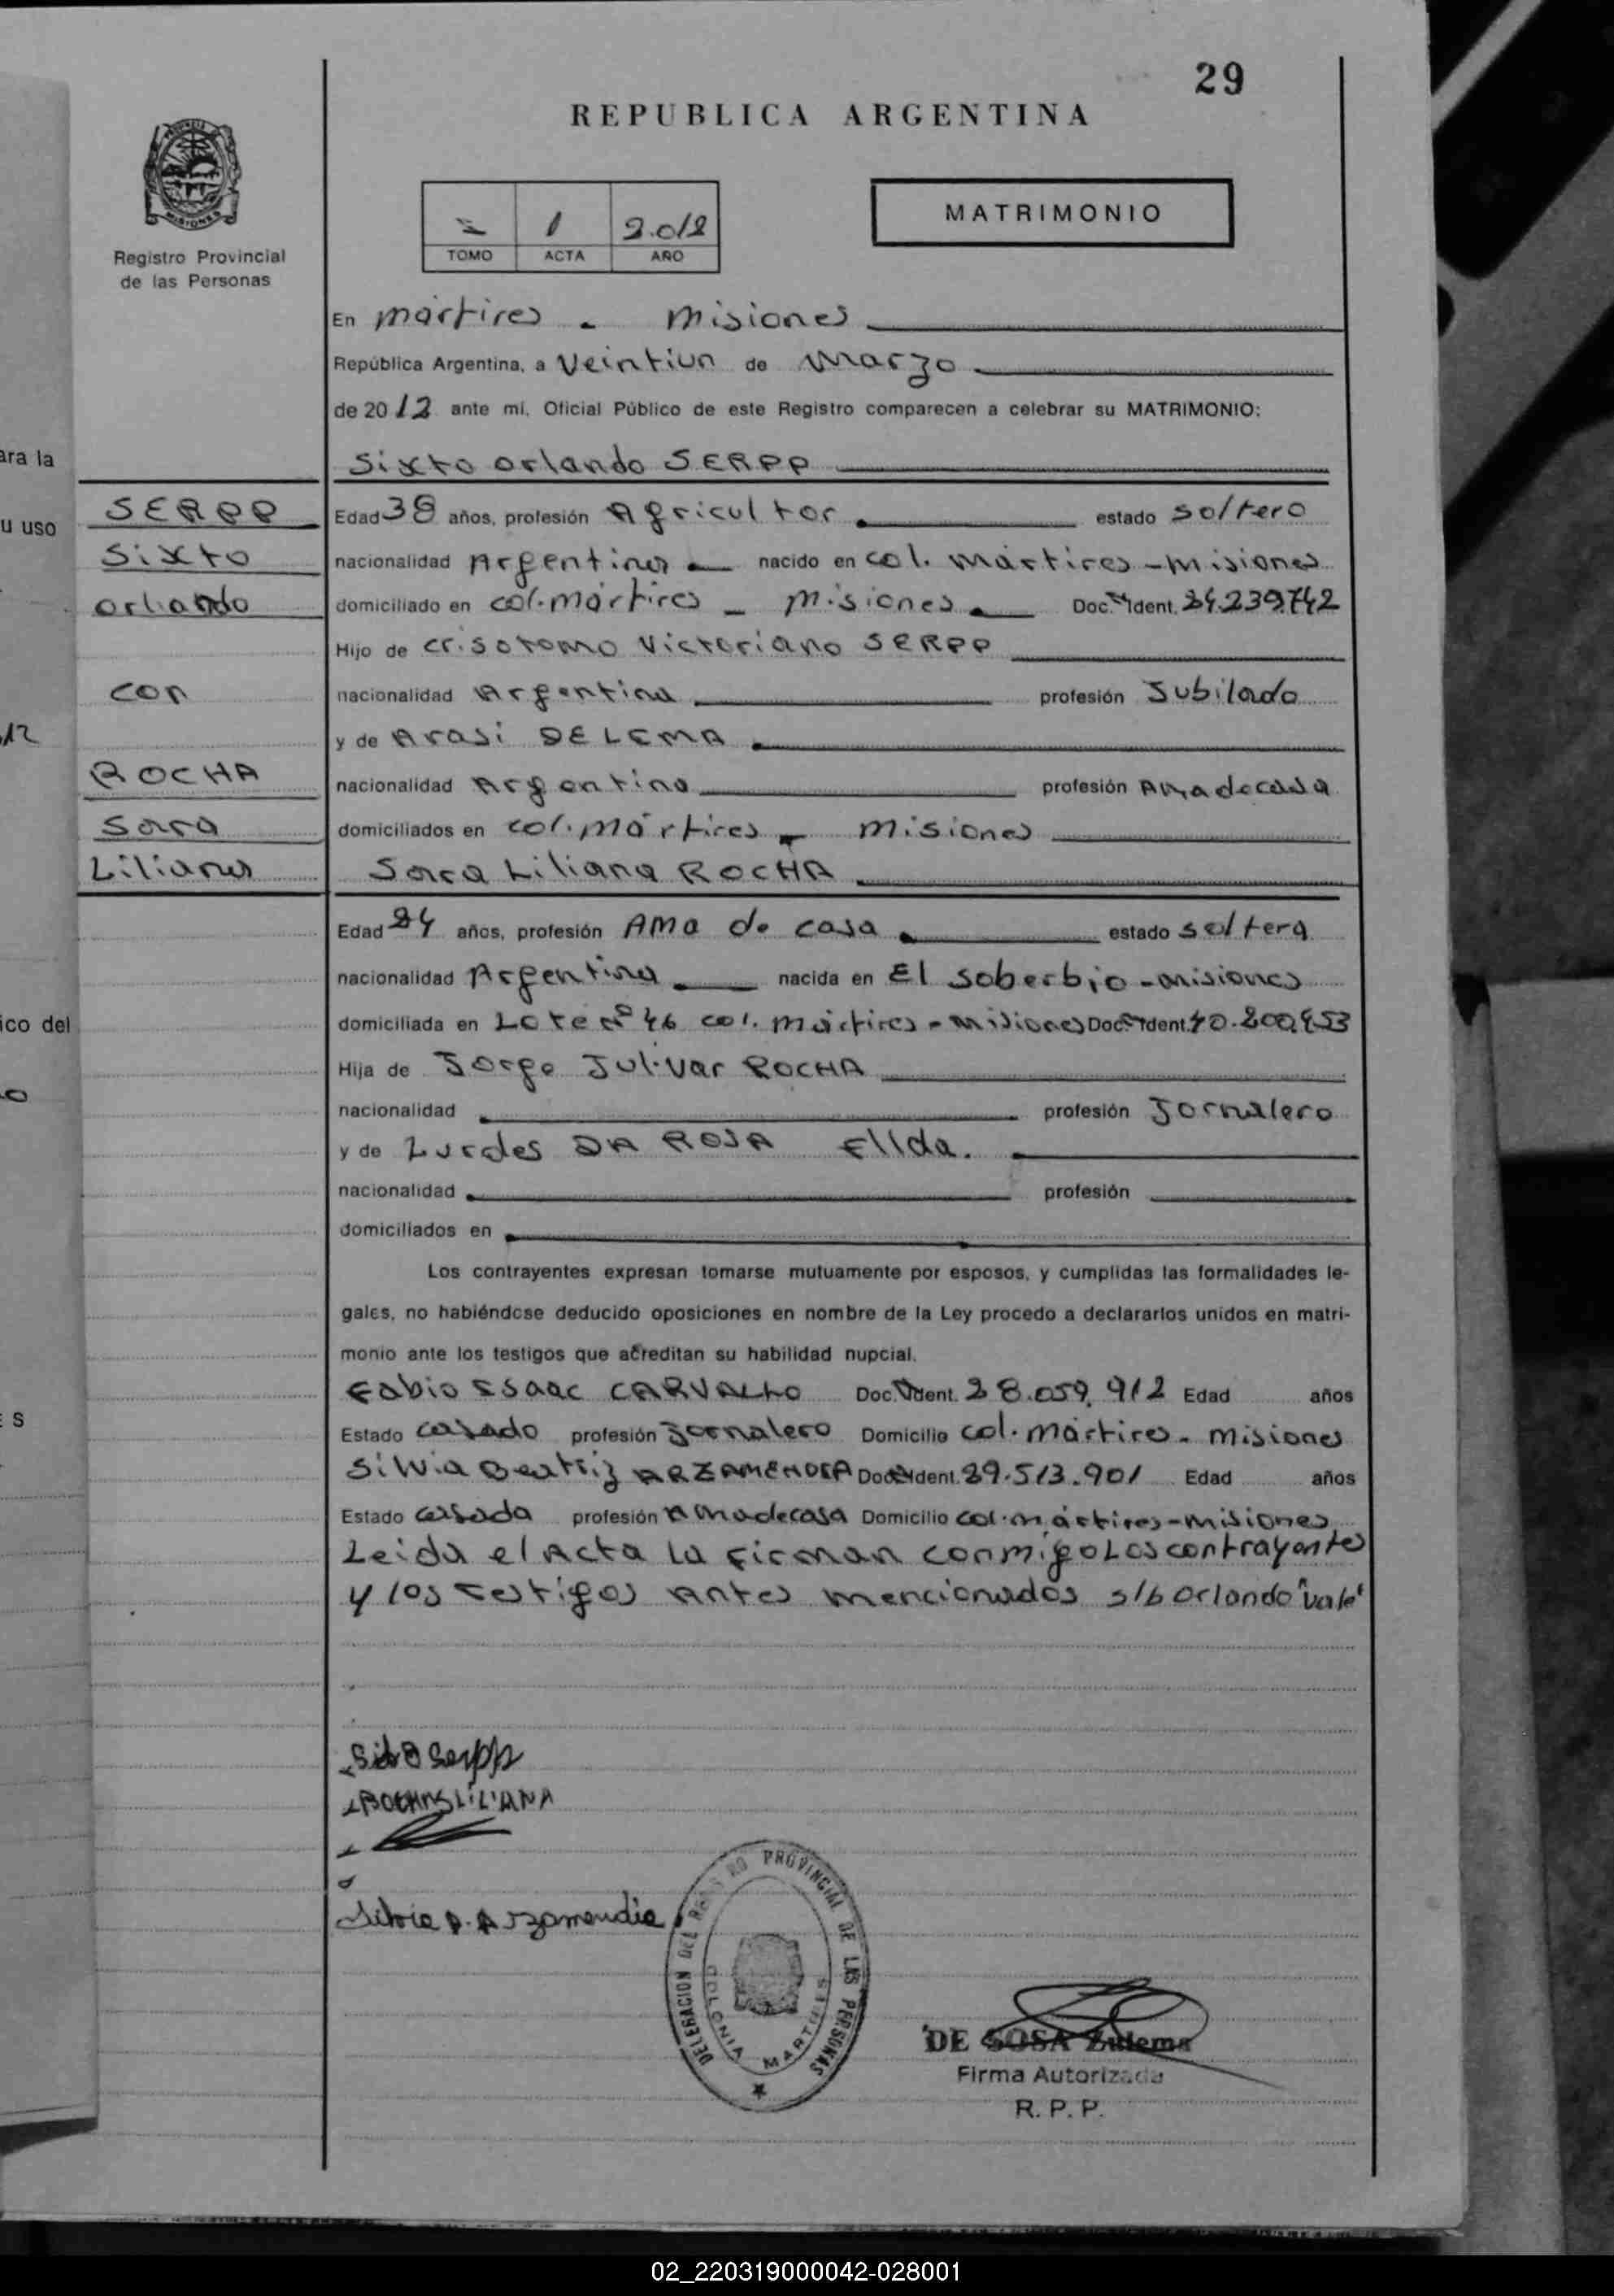 29
REPUBLICA ARGENTINA
MATRIMONIO
1 2.012
TOMO ACTA AÑO
MISIONES
Registro Provincial
de las Personas
En mártires - Misiones
República Argentina, a Veintiun de Marzo
de 2012 ante mí, Oficial Público de este Registro comparecen a celebrar su MATRIMONIO:
ara la
Sixto orlando SERPP
SERPP
u uso
Edad 38 años, profesión Agricultor estado soltero
Sixto
nacionalidad Argentina nacido en col. Mártires - Misiones
orlando
domiciliado en col. mártires - Misiones Doc. Ident. 24.239.742
Hijo de crisotomo Victoriano SERPP
con
nacionalidad Argentina profesión Jubilado
12
y de Arasi DELEMA
ROCHA
nacionalidad Argentina profesión Ama de casa
Sara
domiciliados en col. mártires - Misiones
Liliana
Sara Liliana ROCHA
Edad 24 años, profesión AMa de casa estado soltera
nacionalidad Argentina nacida en El Soberbio - Misiones
ico del
domiciliada en Lote Nº 46 col. Mártires - Misiones Doc. Ident. 40.200.453
Hija de Jorge Julivar ROCHA
nacionalidad profesión Jornalero
y de Lurdes DA ROSA Elida.
nacionalidad profesión
domiciliados en
Los contrayentes expresan tomarse mutuamente por esposos, y cumplidas las formalidades le-
gales, no habiéndose deducido oposiciones en nombre de la Ley procedo a declararlos unidos en matri-
monio ante los testigos que acreditan su habilidad nupcial.
Fabio Isaac CARVALHO Doc. Ident. 28.059.912 Edad años
Estado casado profesión Jornalero Domicilio col. Mártires - Misiones
Silvia Beatriz ARZAMENDIA Doc. Ident. 29.513.901 Edad años
Estado casada profesión Ama de casa Domicilio col. mártires - Misiones
Leida el Acta la firman conmigo Los contrayentes
y los testigos Antes mencionados s/b Orlando "vale"
Sixto Serpp
ROCHA LILIANA
Silvia B. Arzamendia
DELEGACION DEL REGISTRO PROVINCIAL DE LAS PERSONAS
COLONIA MARTIRES
DE SOSA Zulema
Firma Autorizada
R. P. P.
02_220319000042-028001